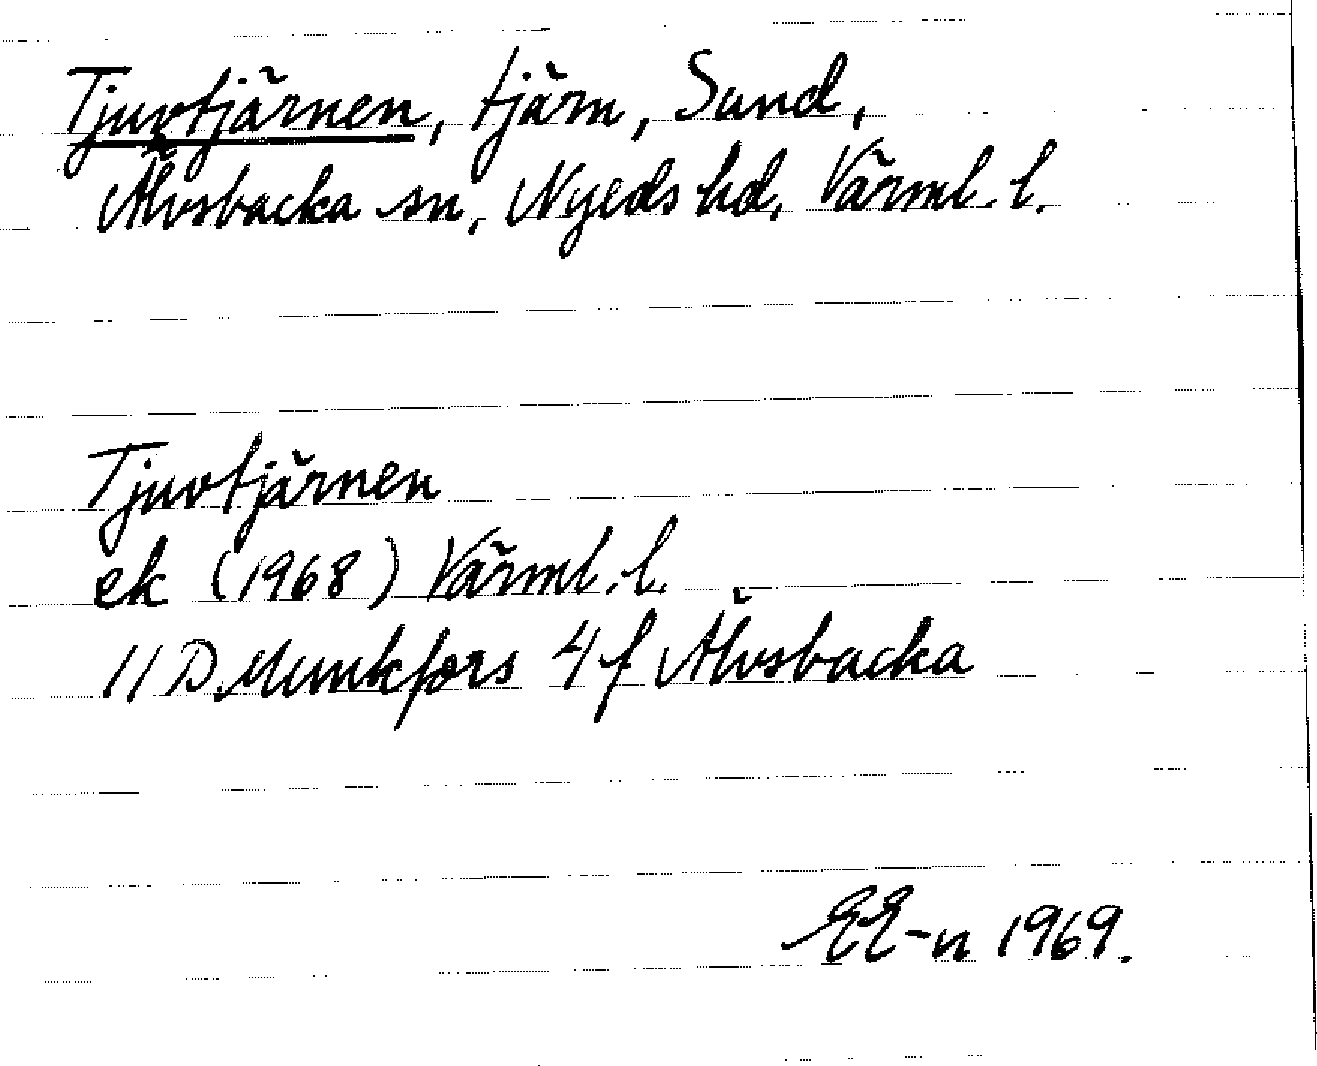 Tjuvtjärnen, tjärn, Sund,
Älvsbacka sn, Nyeds hd, Värml. l.
Tjuvtjärnen
ek (1968) Värml. l.
11 D Munkfors 4 f Älvsbacka
EE-n 1969.